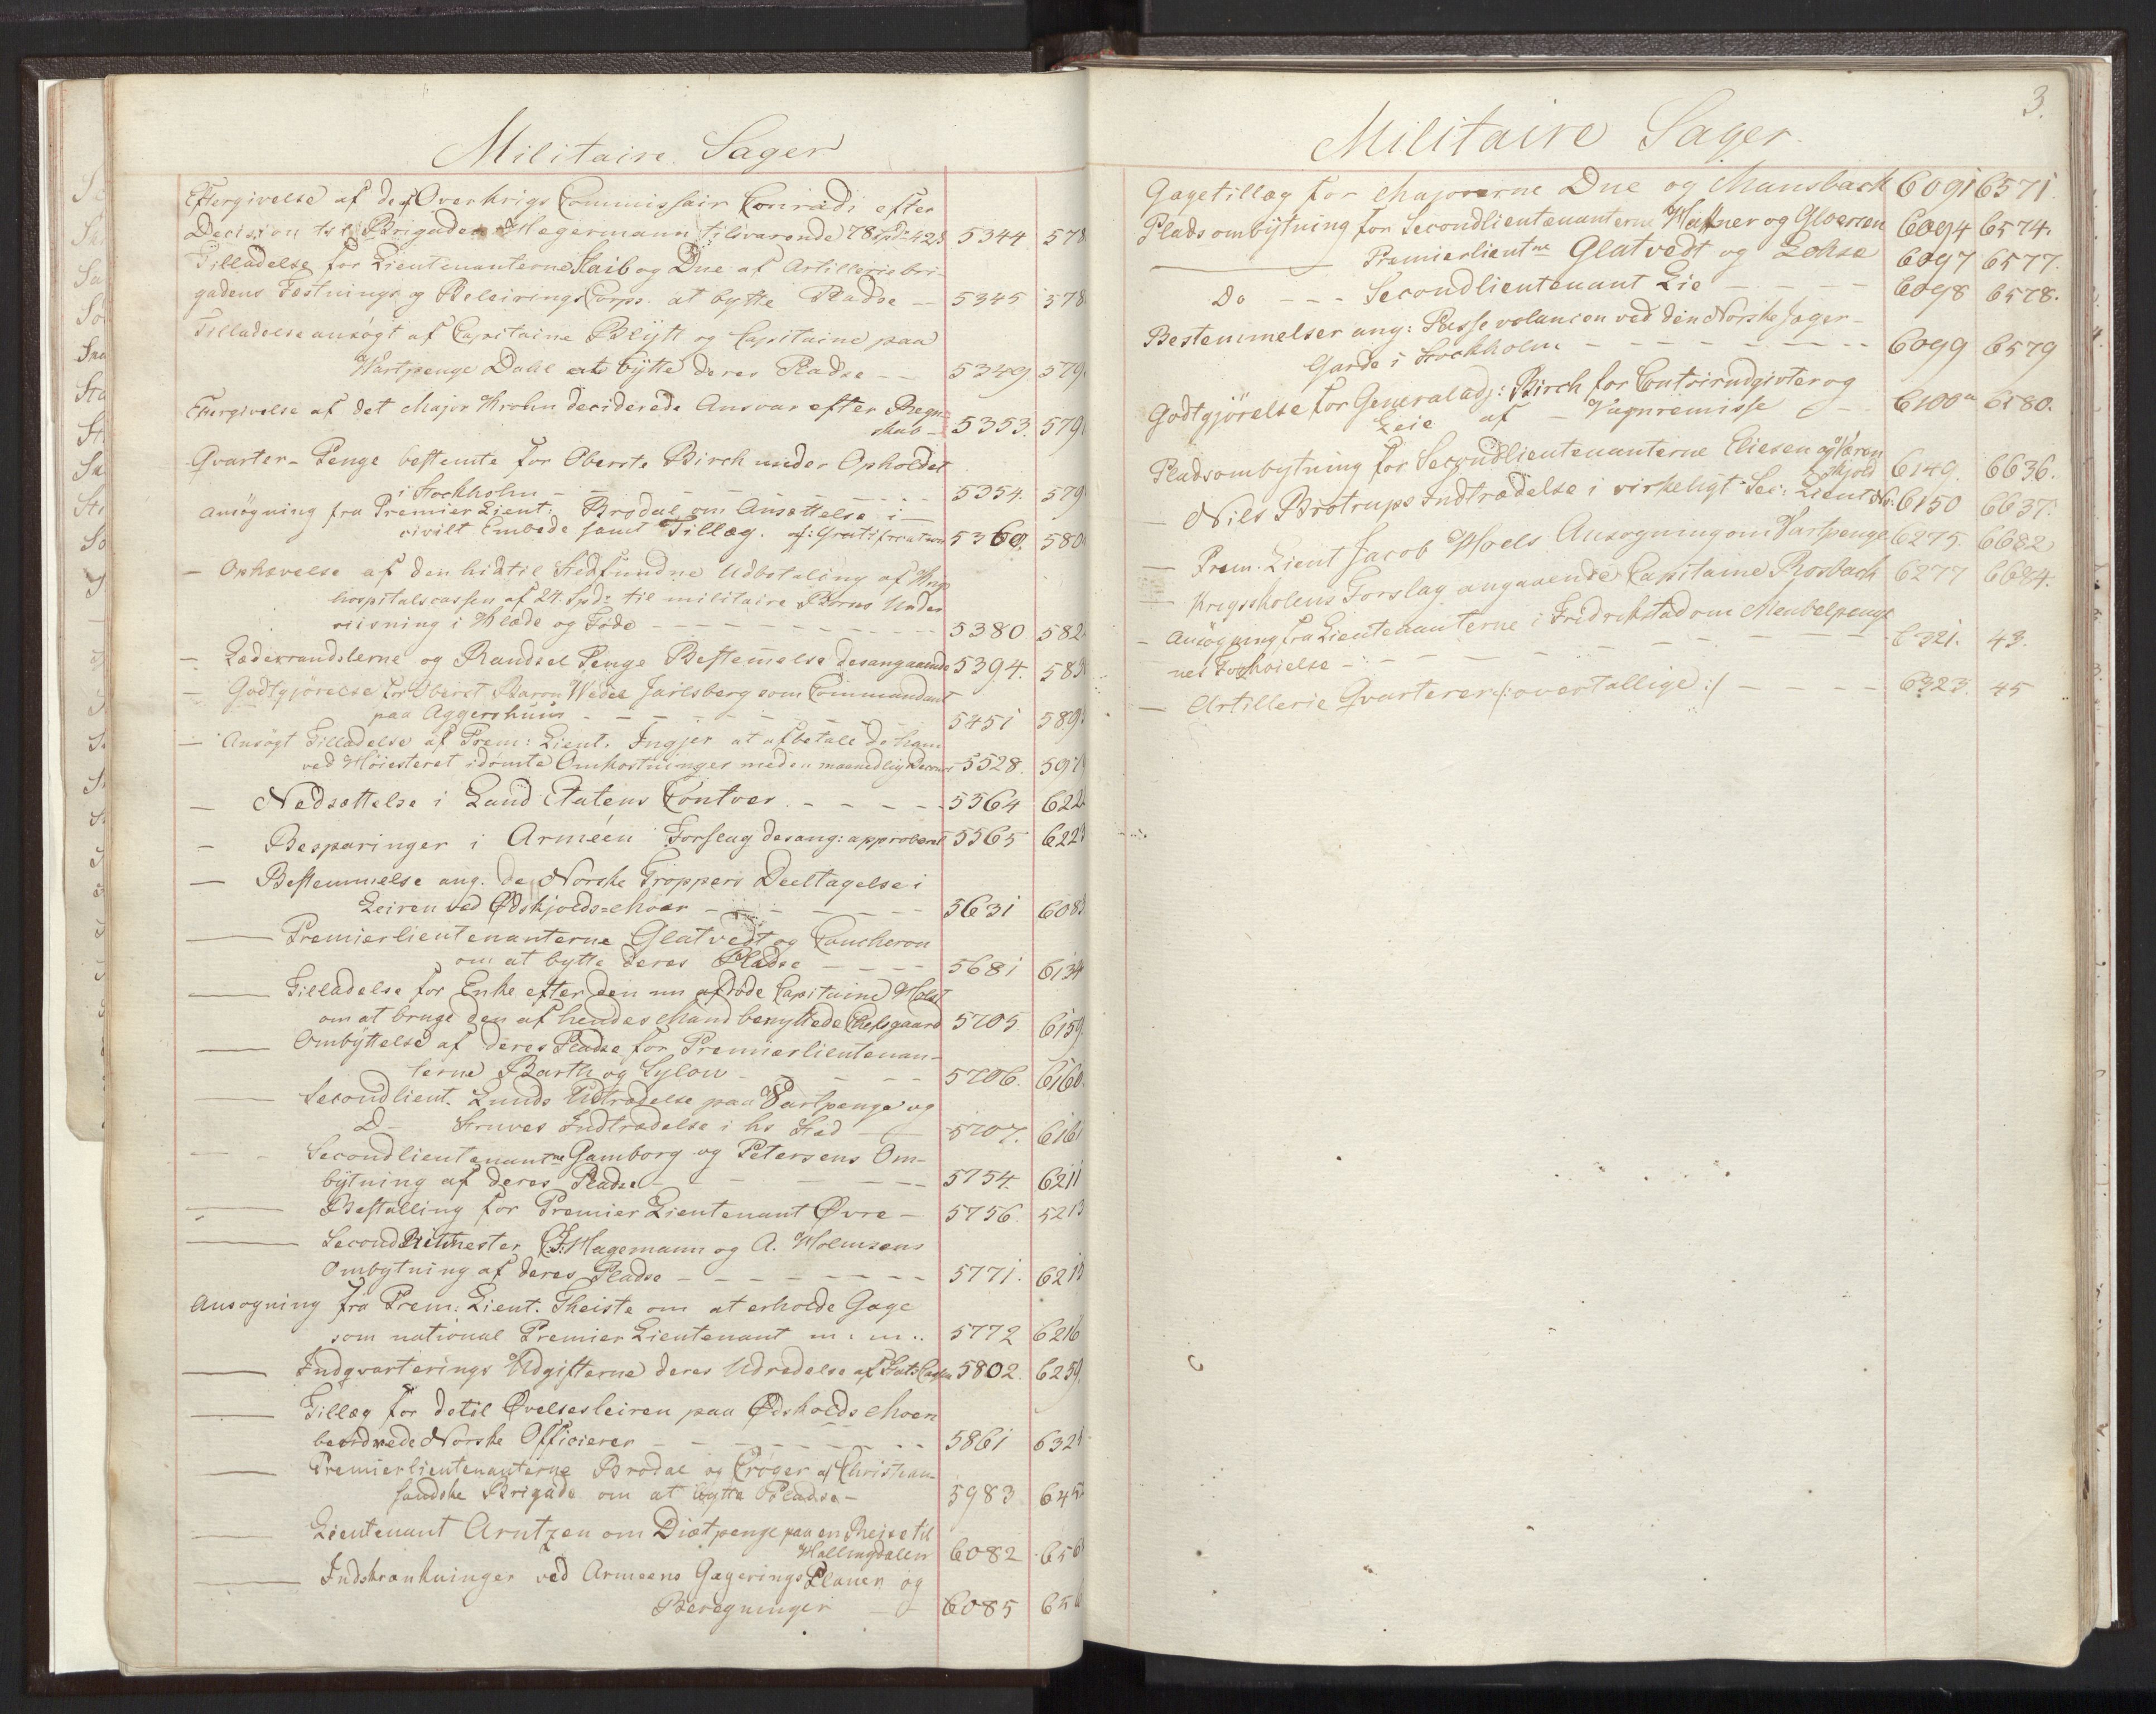 Militaire Sager
Eftergivelse af de af Overkrigs Commissair Conradi efter
Decision til Brigader Hegermann tilsvarende 78 Spd 42 s 5344 578
Tilladelse for Lieutenanterne Staib og Due af Artilleriebri-
gadens Fæstnings og Beleirings Corps at bytte Pladse — 5345 578
Tilladelse ansøgt af Capitaine Blÿtt og Capitaine paa
Vartpenge Dahl at bÿtte deres Pladse — 5349 579
Eftergivelse af det Major Krohn deciderede Ansvar efter Regn-
skab — 5353. 579
Qvarter-Penge bestemte for Oberste Birch under Opholdet
i Stockholm — 5354. 579
Ansøgning fra Premier Lient: Brodal om Ansættelse i
civilt Embede samt Tillæg. af: Gratification 5360. 580
— Ophævelse af den hidtil Stedfundne Udbetaling af Krigs
hospitalscassen af 24. Spd: til militaire Børns Under
viisning i Klæde og Føde — 5380 582
— Læderrandslerne og Randsel Penge Bestemelse desangaaende 5394. 583
— Godtgjørelse for Oberst Baron Wedel Jarlsberg som Commandant
paa Aggershuus — 5451 589
— Ansøgt Tilladelse af Prem: Lient. Ingjer at afbetale de ham
ved Höiesteret idömte Omkostninger med en maanedlig 5528. 597
— Nedsættelse i Land Etatens Contoer — 5564 622
— Besparinger i Arméen Forslag desang: approberet 5565 622
— Bestemmelse ang. de Norske Troppers Deeltagelse i
Leiren ved Ødskjolds=Moen — 5631 608
— Premierlieutenanterne Glatvedt og Caucheron
om at bytte deres Pladse — 5681 6134
— Tilladelse for Enke efter den nu afdøde Capitaine Holst
om at bruge den af hendes Mand benyttede Chefsgaard 5705 6159.
— Ombÿttelse af deres Pladse for Premierlieutenan-
terne Barth og Sylow — 5706. 6160
— Secondlient. Lunds Udtrædelse paa Vartpenge og
D— Struves Indtrædelse i hs Sted — 5707. 6161
— Secondlieutenantne Gamborg og Petersens Om-
bÿtning af deres Pladse — 5754. 6211
— Bestalling for Premier Lieutenant Øvre — 5756. 5213
— Second Ritmester C.F. Hagemann og A. Holmsens
Ombytning af deres Pladse — 5771. 621
Ansøgning fra Prem: Lient. Theiste om at erholde Gage
som national Premier Lieutenant m: m.. 5772 6216
— Indqvarterings Udgifterne deres Udredelse af Stats Cassen 5802. 6259.
— Tillæg for de til Øvelsesleiren paa Ødskolds Moen
beordrede Norske Officierer — 5861 632
— Premierlieutenanterne Brodal og Crøger af Christian-
sandske Brigade om at bytte Pladse — 5983 645
— Lieutenant Arntzen om Diætpenge paa en Reise til
Hallingdalen 6082 656
— Indskrænkninger ved Armeens Gagerings Planer og
Beregninger — 6085 656
3.
Militaire Sager.
Gagetillæg for Majorerne Due og Mansbach 6091 6571.
Plads ombÿtning for Secondlieutenanterne Haffner og Gloersen 6094 6574.
— Premierlientne Glatvedt og Lohse 6097 6577.
Do — — — Secondlieutenant Lie — 6098 6578.
Bestemmelser ang: Passevolancen ved den Norske Jager-
Garde i Stockholm — 6099 6579
Godtgjörelse for Generaladj: Birch for Contoirudgivter og
Leie af — Vognremisse — 6100 a 6580.
Pladsombytning for Secondlieutenanterne Eliesen og Væren
skjold 6149. 6636.
— Nils Brotrups Indtrædelse i virkeligt Sec: Lient Nr. 6150 6637.
— Prem. Lient Jacob Hoels Ansøgning om Vartpenge 6275. 6682
— Krigsskolens Forslag angaaende Capitaine Rosbach 6277 6684.
— Ansøgning fra Lieutenanterne i Fridrikstad om Meubelpenge
nes Forhøielse — 6321. 43.
— Artillerie Qvarterer /: overtallige :/ — 6323. 45